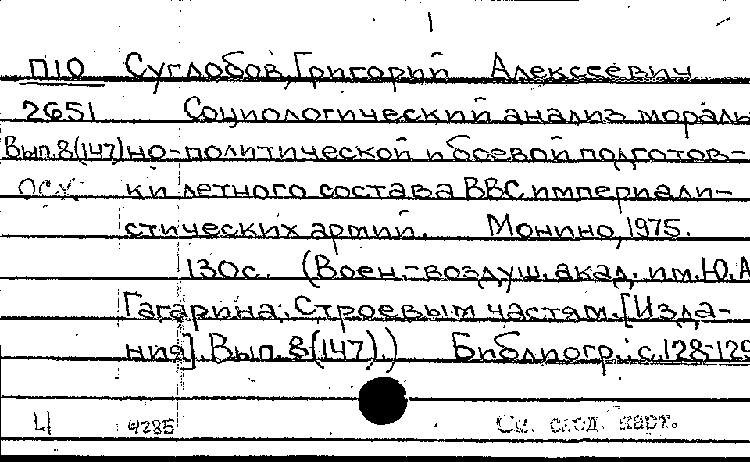 1
П10 Суглобов, Григорий Алексеевич
2651 Социологический анализ мораль
Вып.8(147) но-политической и боевой подготов-
осу ки летного состава ВВС империали-
стических армий. Монино, 1975.
130с. (Воен.-воздуш. акад. им. Ю.А
Гагарина. Строевым частям. [Изда-
ния]. Вып. 8(147).) Библиогр.: с.128-129
Ц 4285 См. след. карт.